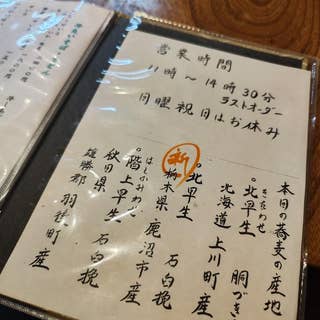 営業時間
11時～14時30分
ラストオーダー
月曜祝日はお休み
本日の蕎麦の産地
きたわせ
。北早生 胴づき
北海道 上川町産
新
。北早生 石臼挽
栃木県 鹿沼市産
はしかみわせ
。階上早生 石臼挽
秋田県
雄勝郡 羽後町産